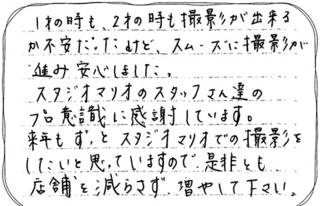 1才の時も、2才の時も撮影が出来る
か不安だったけど、スムーズに撮影が
進み安心しました。
スタジオマリオのスタッフさん達の
プロ意識に感謝しています。
来年もずっとスタジオマリオでの撮影を
したいと思っていますので、是非とも
店舗を減らさず、増やして下さい。